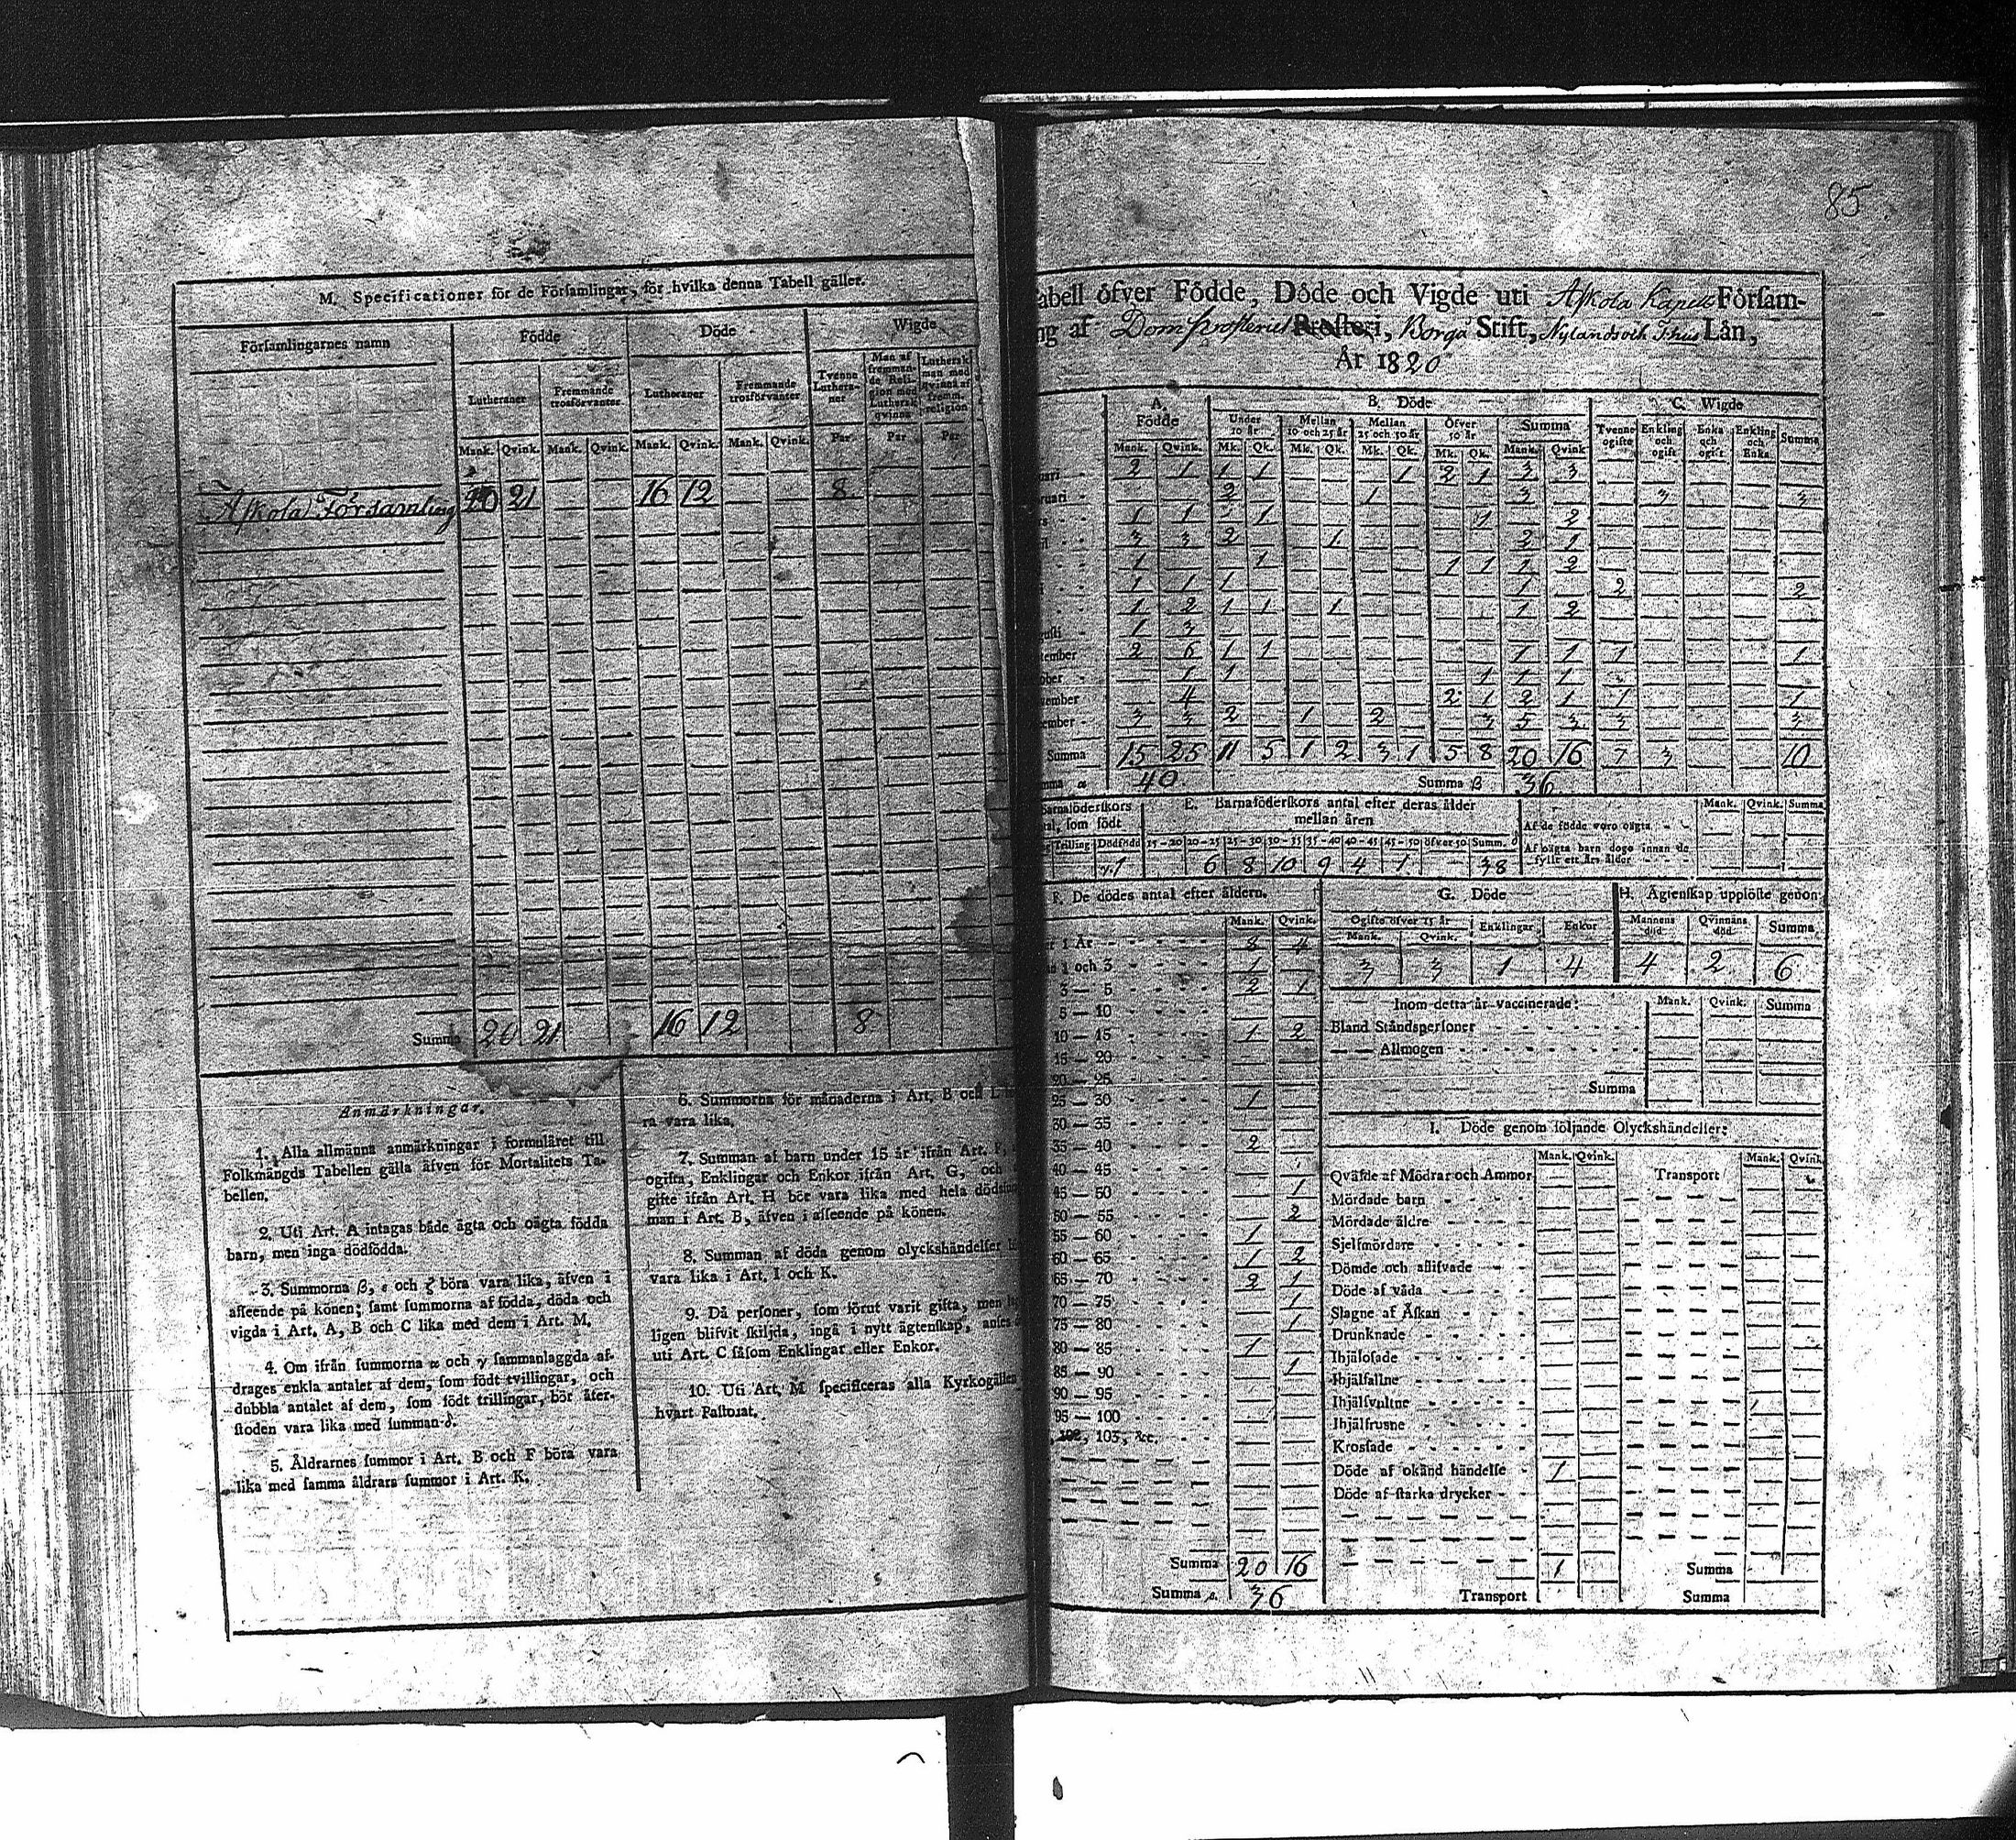 85
M. Specificationer för de Församlingar, för hvilka denna Tabell gäller.
Församlingarnes namn
Födde
Döde
Wigde
Lutheraner
Fremmande trosförvanter
Lutheraner
Fremmande trosförvanter
Tvenne Lutheraner
Man af fremmande Religion med Luthersk qvinna
Luthersk man med qvinna af fremm. religion
Mank. Qvink. Mank. Qvink. Mank. Qvink. Mank. Qvink. Par Par Par
Askola Församling 20 21 16 12 8
Summa 20 21 16 12 8
Anmärkningar.
1. Alla allmänna anmärkningar i formuläret till
Folkmängds Tabellen gälla äfven för Mortalitets Ta-
bellen.
2. Uti Art. A intagas både ägta och oägta födda
barn, men inga dödfödda.
3. Summorna β, ε och ζ böra vara lika, äfven i
afseende på könen; samt summorna af födda, döda och
vigda i Art. A, B och C lika med dem i Art. M.
4. Om ifrån summorna α och γ sammanlaggda af-
drages enkla antalet af dem, som födt tvillingar, och
dubbla antalet af dem, som födt trillingar, bör åter-
stoden vara lika med summan δ.
5. Åldrarnes summor i Art. B och F böra vara
lika med samma åldrars summor i Art. K.
6. Summorna för månaderna i Art. B och L
ra vara lika.
7. Summan af barn under 15 år ifrån Art. F,
ogifta, Enklingar och Enkor ifrån Art. G, och
gifte ifrån Art. H bör vara lika med hela
man i Art. B, äfven i afseende på könen.
8. Summan af döda genom olyckshändelser
vara lika i Art. I och K.
9. Då personer, som förut varit gifta, men
ligen blifvit skiljda, ingå i nytt ägtenskap, anses
uti Art. C såsom Enklingar eller Enkor.
10. Uti Art. M specificeras alla Kyrkogällen
hvart Pastorat.
abell öfver Födde, Döde och Vigde uti Askola Kapell Församl-
ng af Domprosteriet Prosteri, Borgå Stift, Nylands och T:hus Län,
År 1820
A. Födde
B. Döde
C. Wigde
Under 10 år
Mellan 10 och 25 år
Mellan 25 och 50 år
Öfver 50 år
Summa
Tvenne ogifte
Enkling och ogift
Enka och ogift
Enkling och Enka
Summa
Mank. Qvink. Mk. Qk. Mk. Qk. Mk. Qk. Mk. Qk. Mank. Qvink
uari 2 1 1 1 1 2 1 3 3
ruari 2 1 3 3 3
rs 1 1 1 1 2
il 3 3 2 1 2 1
1 1 1 1 1 2
i 1 1 1 1 2 2
1 2 1 1 1 1 2
usti 1 3
tember 2 6 1 1 1 1 1 1
ober 1 1 1 1 1
vember 4 2 1 2 1 1 1
ember 3 3 2 1 2 3 5 3 3 3
Summa 15 25 11 5 1 2 3 1 5 8 20 16 7 3 10
mma α 40 Summa β 36
Barnaföderskors
al, som födt
Trilling Dödfödd
1
E. Barnaföderskors antal efter deras ålder
mellan åren
15 - 20 20 - 25 25 - 30 30 - 35 35 - 40 40 - 45 45 - 50 öfver 50 Summ. δ
6 8 10 9 4 1 38
Mank. Qvink. Summa
Af de födde voro oägta
Af oägta barn dogo innan de
fyllt ett års ålder
F. De dödes antal efter åldern.
Mank. Qvink.
r 1 År 8 4
1 och 3 1
3 — 5 2 1
5 — 10
10 — 15 1 2
15 — 20
20 — 25
25 — 30 1
30 — 35
35 — 40 2
40 — 45
45 — 50 1
50 — 55 2
55 — 60 1
60 — 65 1 2
65 — 70 2 1
70 — 75 1
75 — 80 1
80 — 85 1
85 — 90 1
90 — 95
95 — 100
, 102, 103, &c.
Summa 20 16
Summa ε. 36
G. Döde
Ogifte öfver 15 år
Mank. Qvink. Enklingar Enkor
3 3 1 4
H. Ägtenskap upplöste genom
Mannens död Qvinnans död Summa
4 2 6
Inom detta år vaccinerade: Mank. Qvink. Summa
Bland Ståndspersoner
— — Allmogen
Summa
I. Döde genom följande Olyckshändelser:
Mank. Qvink. Mank. Qvink
Qväfde af Mödrar och Ammor Transport
Mördade barn
Mördade äldre
Sjelfmördare
Dömde och aflifvade
Döde af våda
Slagne af Åskan
Drunknade
Ihjälosade
Ihjälfallne
Ihjälsvultne
Ihjälfrusne
Krossade
Döde af okänd händelse 1
Döde af starka drycker
1 Summa
Transport Summa